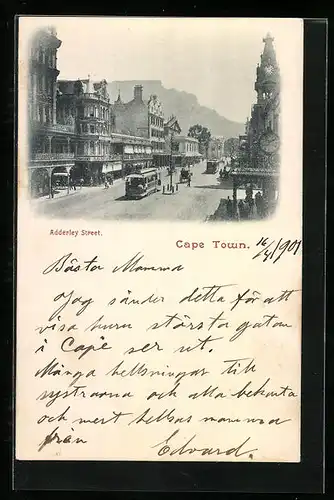 Adderley Street.
Cape Town. 16/4 1901
Bästa Mamma
Jag sänder detta för att
visa huru största gatan
i Capé ser ut.
Många helsningar till
systrarna och alla bekanta
och mest helsas mamma
från
Edvard.